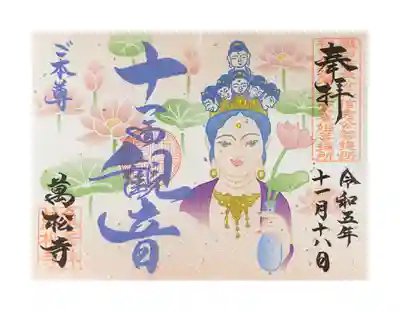 奉拝
令和五年
十一月十八日
十一面観音
ご本尊
萬松寺